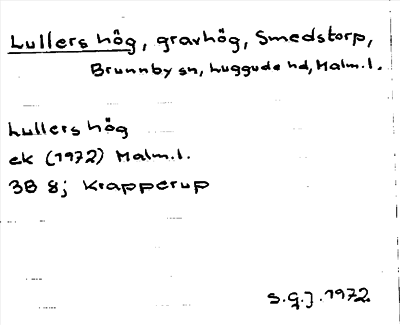 Lullers hög, gravhög, Smedstorp,
Brunnby sn, Luggude hd, Malm.l.
Lullers hög
ek (1972) Malm.l.
3B 8j Krapperup
S.G.J. 1972